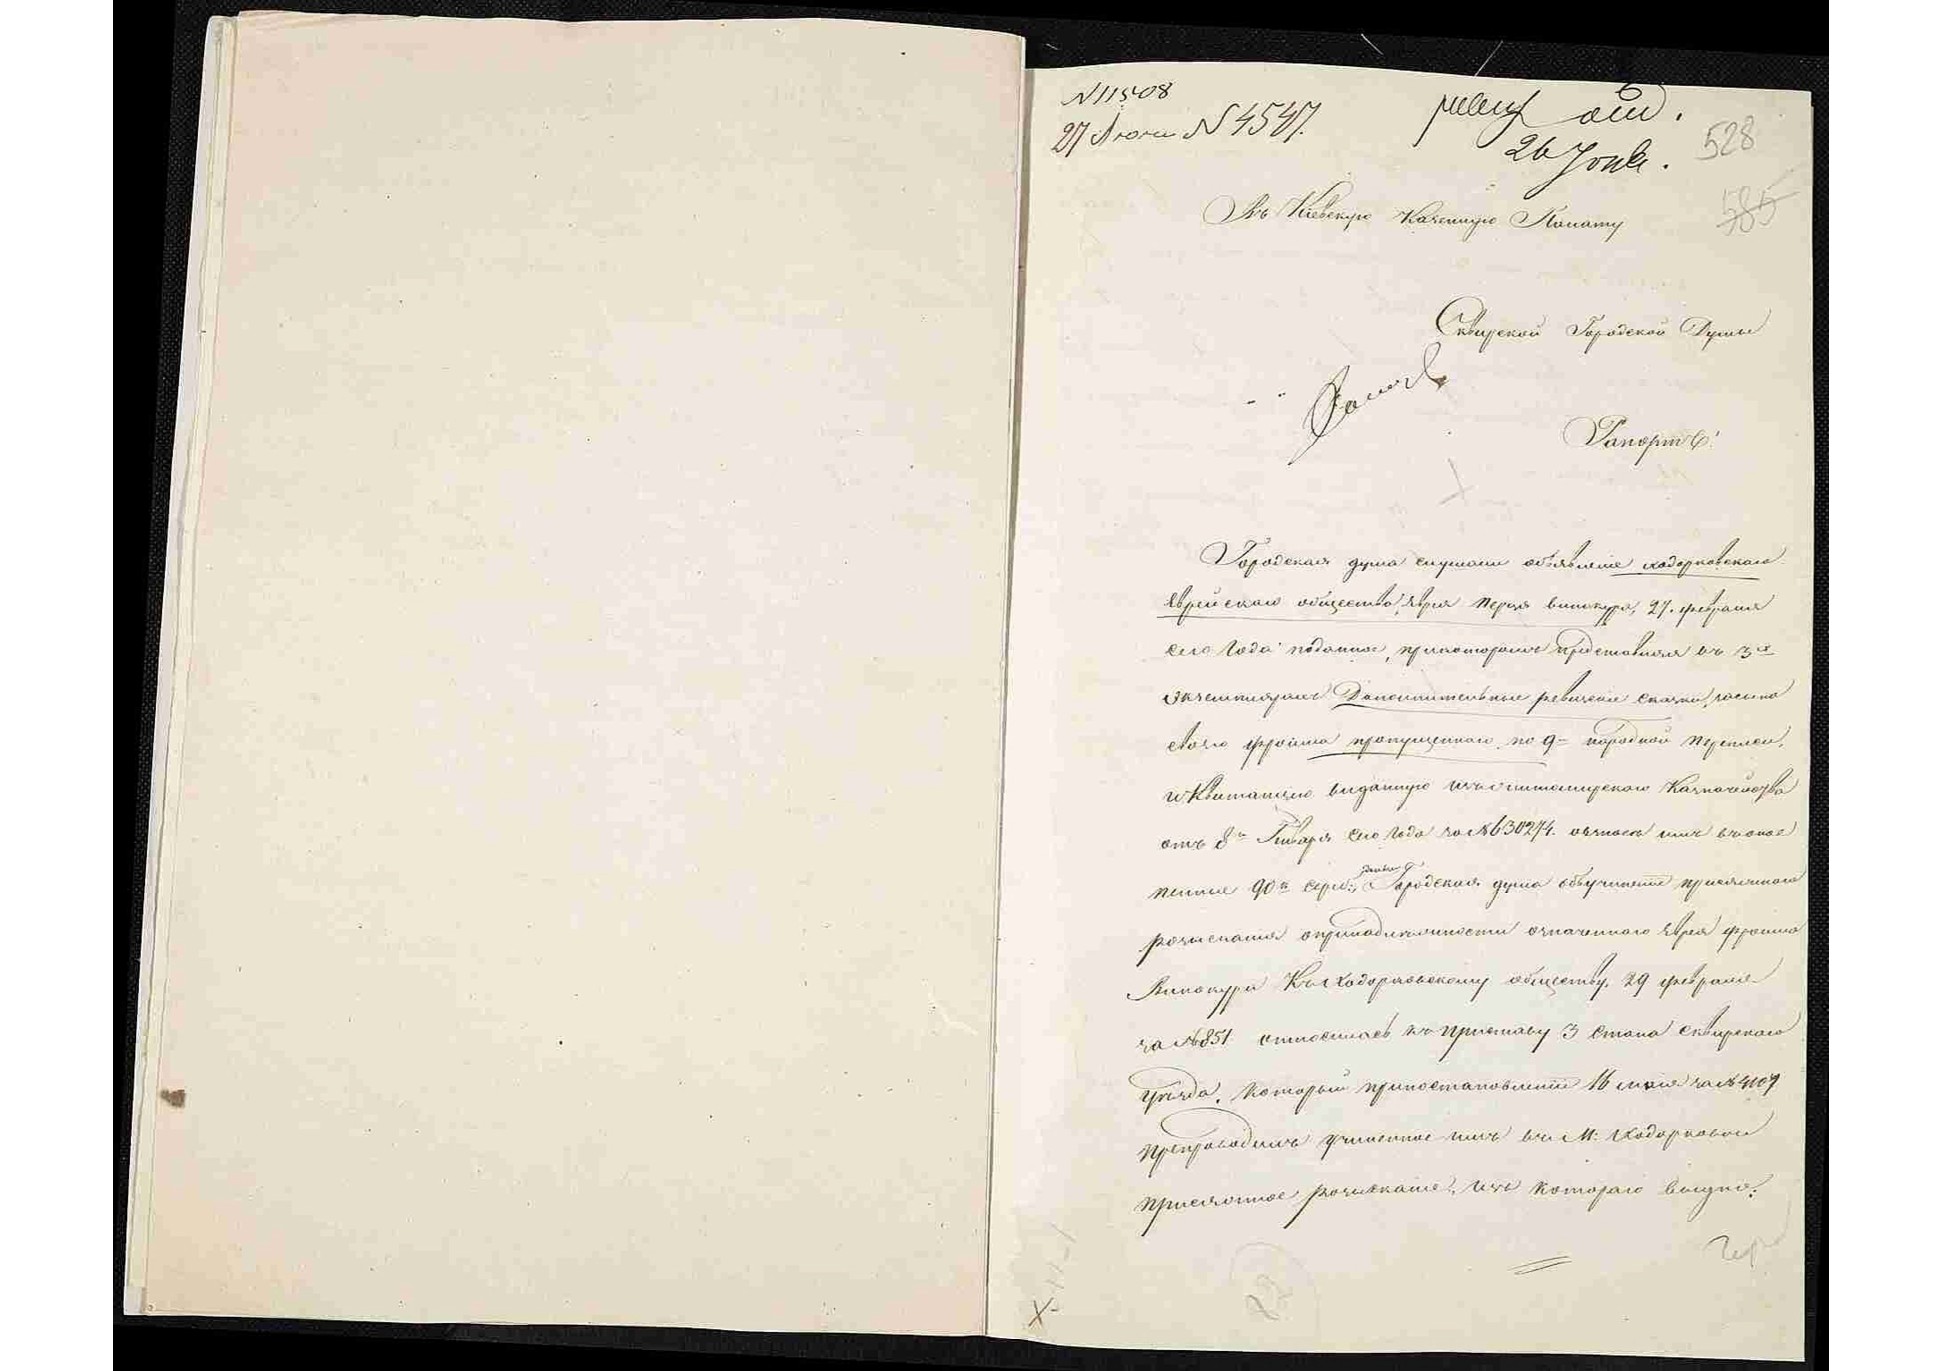 N 11508
27 Июня N 4547.
26 Июня.
528
585
Въ Кіевскую Казенную Палату
Сквирской Городской Думы
Рапортъ.
Городская дума слушали объявленіе Ходорковскаго
Еврейскаго общества, Еврея Винокура, 27. февраля
сего года поданное, прикоторомъ представляя въ 3х
экземплярахъ Дополнительные ревизскіе сказки, насына
своего Фройма пропущеннаго по 9й народной переписи,
и Квитанцію выданную изъ Житомирскаго Казначейства
отъ 8го Генваря сего года за №630274. овзносѣ имъ
90 к сереб., Городская дума объучиненіи присяжнаго
розысканія опринадлежности означеннаго Еврея Фройма
Винокура Къ Ходорковскому обществу, 29 февраля
за №851. относилась къ Приставу 3 Стана Сквирскаго
Уѣзда, Который 16 мая за № 4109
Препроводилъ учиненное имъ въ М: Ходорковѣ
присяжное розысканіе, изъ Котораго видно: